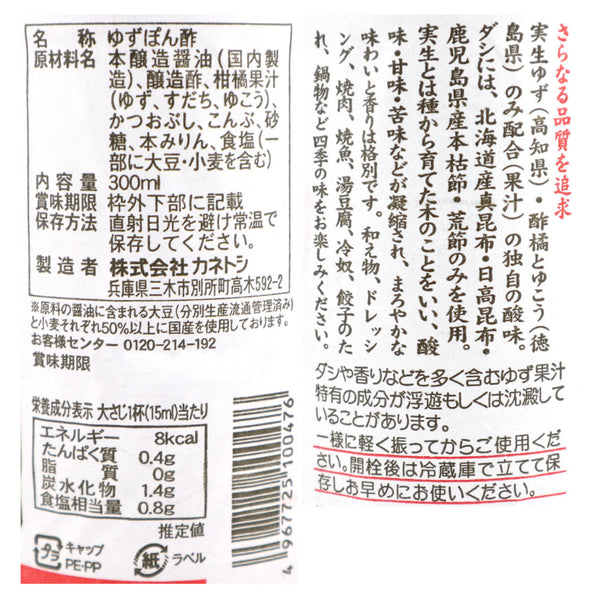 名　称　ゆずぽん酢
原材料名　本醸造醤油(国内製
造)、醸造酢、柑橘果汁
(ゆず、すだち、ゆこう)、
かつおぶし、こんぶ、砂
糖、本みりん、食塩(一
部に大豆・小麦を含む)
内 容 量　300ml
賞味期限　枠外下部に記載
保存方法　直射日光を避け常温で
保存してください。
製 造 者　株式会社 カネトシ
兵庫県三木市別所町高木592-2
※原料の醤油に含まれる大豆(分別生産流通管理済み)
と小麦それぞれ50%以上に国産を使用しております。
お客様センター 0120-214-192
賞味期限
栄養成分表示 大さじ1杯(15ml)当たり
エネルギー　8kcal
たんぱく質　0.4g
脂　質　0g
炭水化物　1.4g
食塩相当量　0.8g
推定値
プラ
キャップ
PE・PP
紙
ラベル
4967725100476
さらなる品質を追求
実生ゆず(高知県)・酢橘とゆこう(徳
島県)のみ配合(果汁)の独自の酸味。
ダシには、北海道産真昆布・日高昆布・
鹿児島県産本枯節・荒節のみを使用。
実生とは種から育てた木のことをいい、酸
味・甘味・苦味などが凝縮され、まろやかな
味わいと香りは格別です。和え物、ドレッシ
ング、焼肉、焼魚、湯豆腐、冷奴、餃子のた
れ、鍋物など四季の味をお楽しみください。
ダシや香りなどを多く含むゆず果汁
特有の成分が浮遊もしくは沈澱して
いることがあります。
一様に軽く振ってからご使用くだ
さい。開栓後は冷蔵庫で立てて保
存しお早めにお使いください。